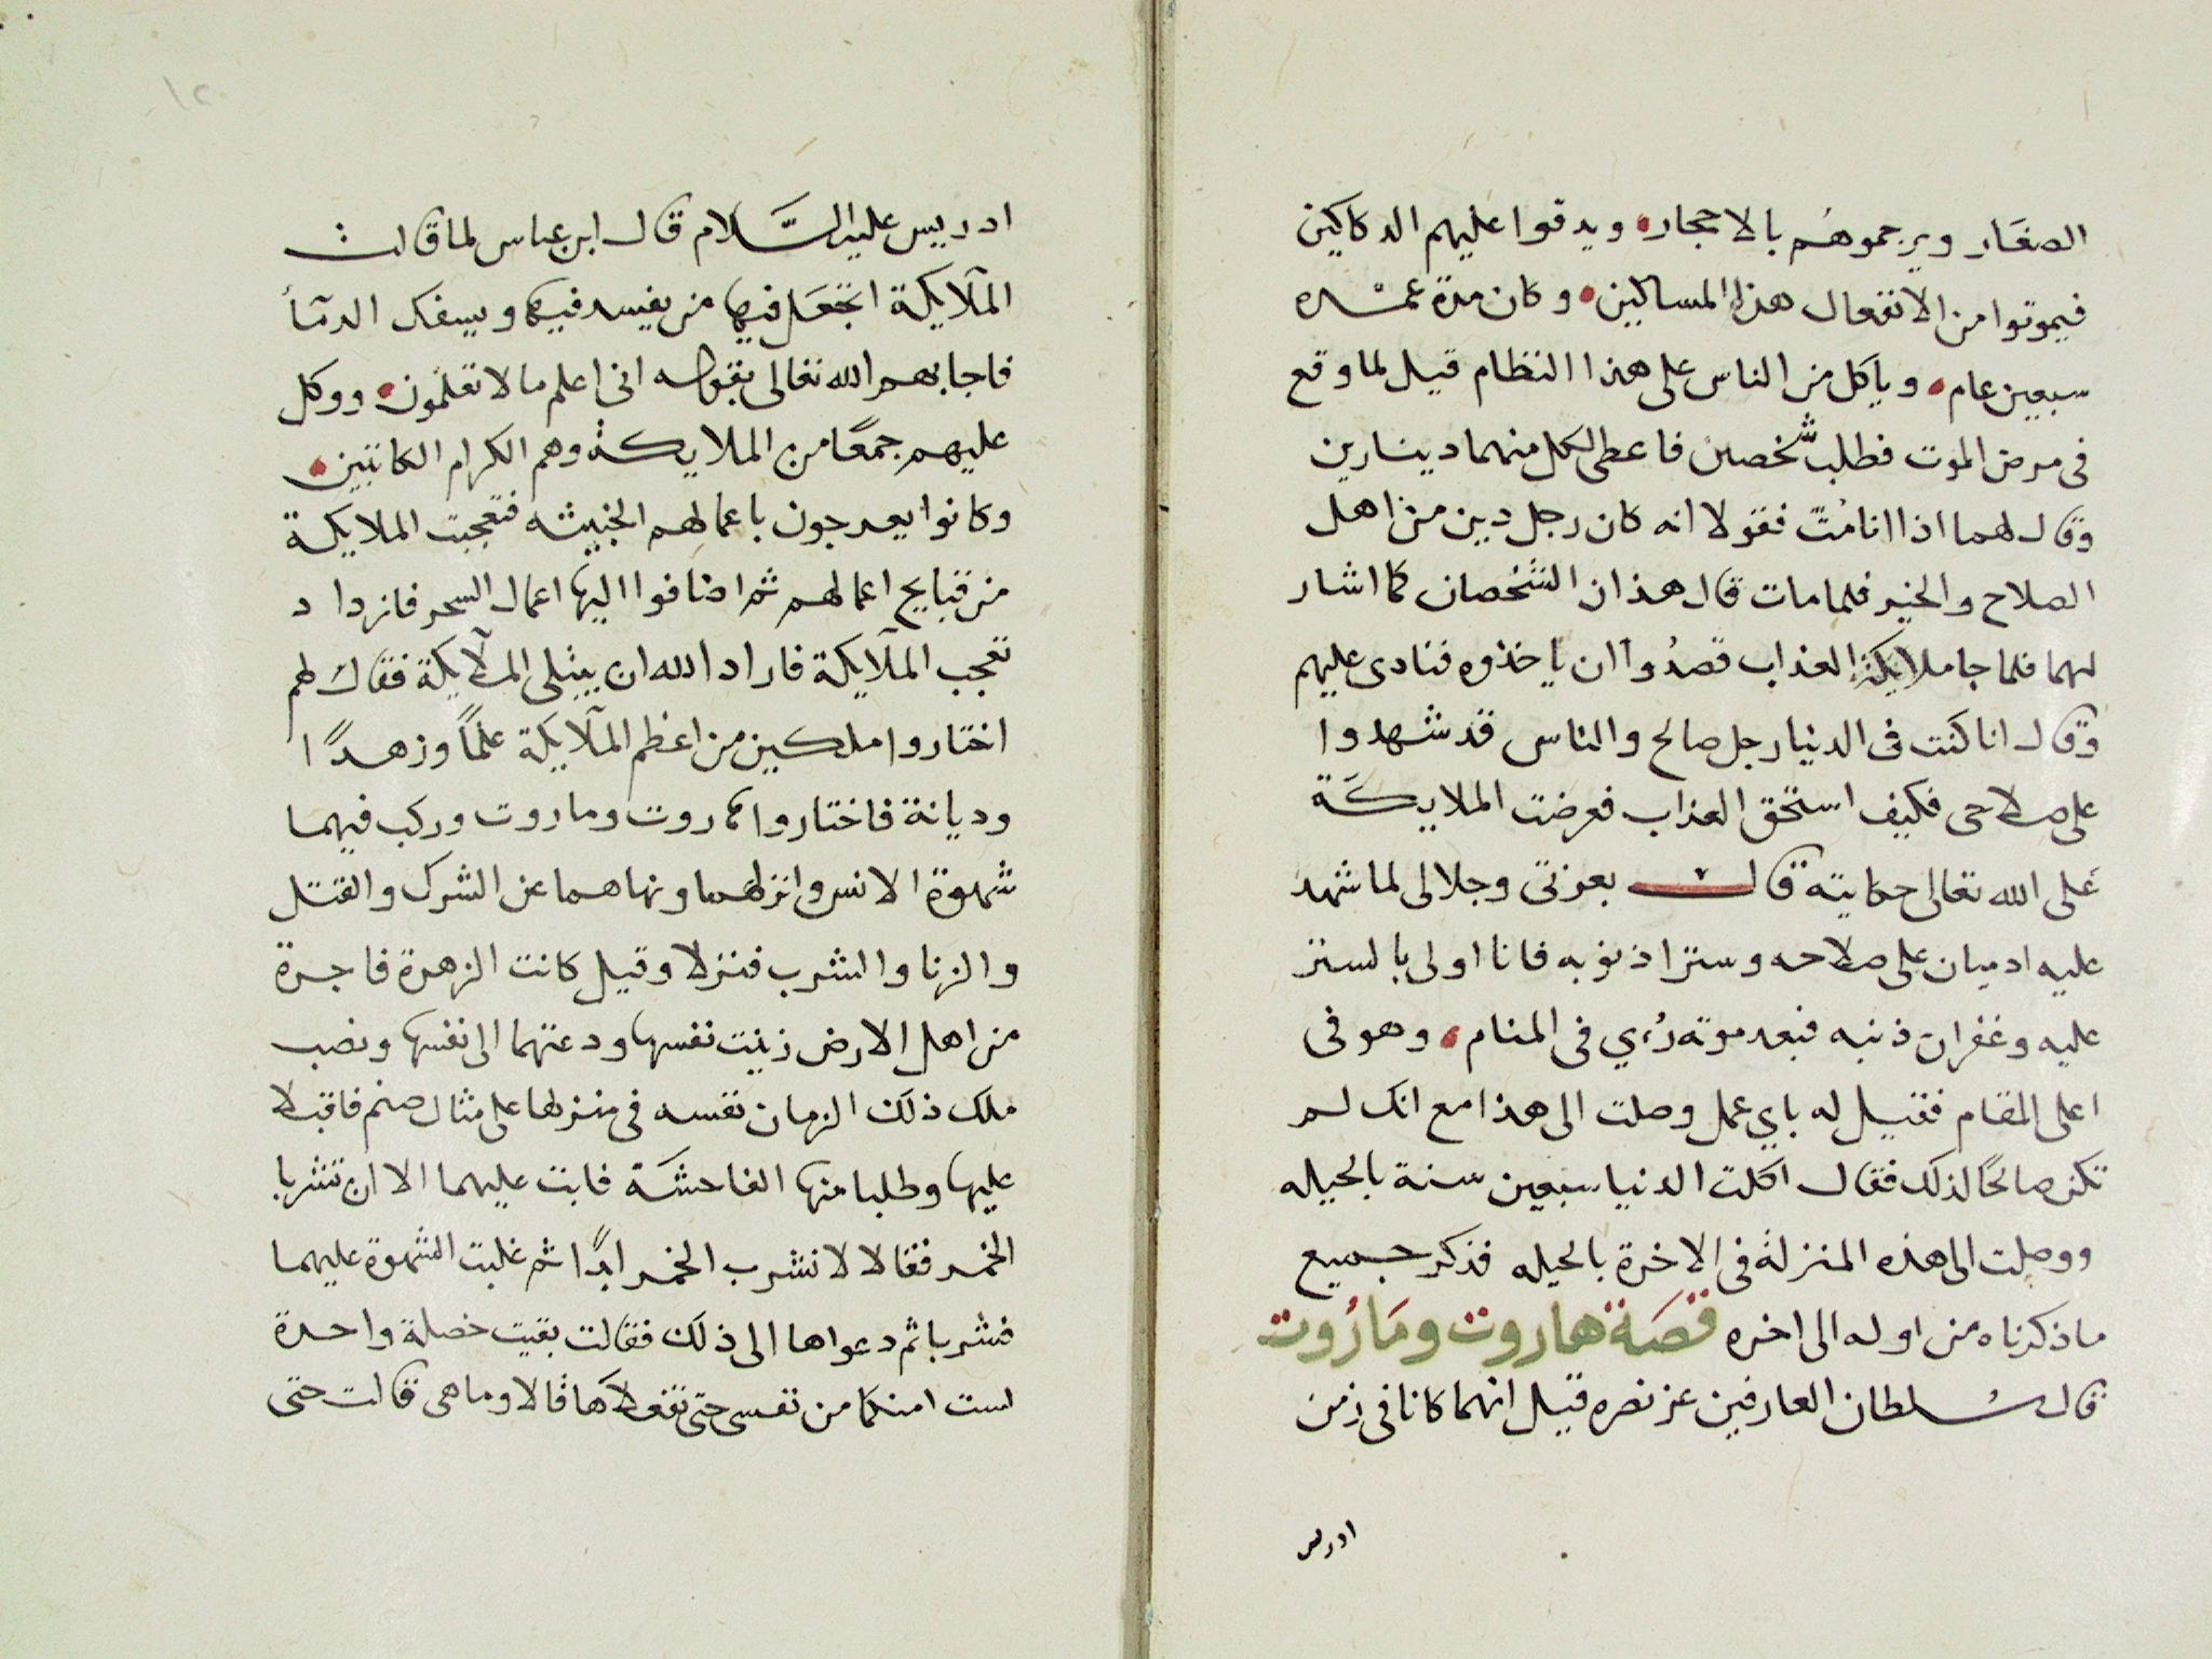 الصغار ويرجموهُم بالاحجار ويدقوا عليهم الدكاكين
فيموتوا من الانفعال هذا المساكين وكان مدة عمره
سبعين عام وياكل من الناس على هذا النظام قيل لما وقع
فى مرض الموت فطلب شخصين فاعطى لكل منهما دينارين
وقال لهما اذا انا متّ فقولا انه كان رجل دين من اهل
الصلاح والخير فلما مات قال هذان الشخصان كما اشار
لهما فلما جا ملايكة العذاب قصدُوا ان ياخذوه فنادى عليهم
وقال انا كنت فى الدنيا رجل صالح والناس قد شهدوا
على صلاحى فكيف استحق العذاب فعرضت الملايكَة
على الله تعالى حكايته قالت بعزتى وجلالى لما شهد
عليه ادميان على صلاحه وسترا ذنوبه فانا اولى بالستر
عليه وغفران ذنبه فبعد موته رُءي فى المنام وهو فى
اعلى المقام فقيل له باي عمل وصلت الى هذا مع انك لم
تكن صالحًا لذلك فقال اكلت الدنيا سبعين سنة بالحيله
ووصلت الى هذه المنزلة فى الاخرة بالحيله فذكر جميع
ما ذكرناه من اوله الى اخره قصَة هاروت ومَارُوت
قال سُلطان العارفين عز نصره قيل انهما كانا فى زمن
ادريس
ادريس عليه السَّلام قال ابن عباس لما قالت
الملآيكة اتجعَل فيها من يفسد فيها ويسفك الدمآأ
فاجابهم الله تعالى بقوله انى اعلم ما لا تعلمون ووكل
عليهم جمعًا من الملايكة وهم الكرام الكاتبين
وكانوا يعرجون باعمالهم الخبيثه فتعجبت الملايكة
من قبايح اعمالهم ثم اضافوا اليها اعمال السحر فازداد
تعجب الملآيكة فاراد الله ان يبتلى الملآيكة فقال لهم
اختاروا ملكين من اعظم الملآيكة علمًا وزهدًا
وديانة فاختاروا هاروت وماروت وركب فيهما
شهوة الانس وانزلهما ونهاهما عن الشرك والقتل
والزنا والشرب فنزلا وقيل كانت الزهرة فاجرة
من اهل الارض زينت نفسها ودعتهما الى نفسها ونصب
ملك ذلك الزمان نفسه فى منزلها على مثال صنم فاقبلا
عليها وطلبا منها الفاحشَة فابت عليهما الا ان تشربا
الخمر فقالا لا نشرب الخمر ابدًا ثم غلبت الشهوة عليهما
فشربا ثم دعواها الى ذلك فقالت بقيت خصلة واحدة
لست امنكما من نفسى حتى تفعلاَها قالا وما هى قالت حتى